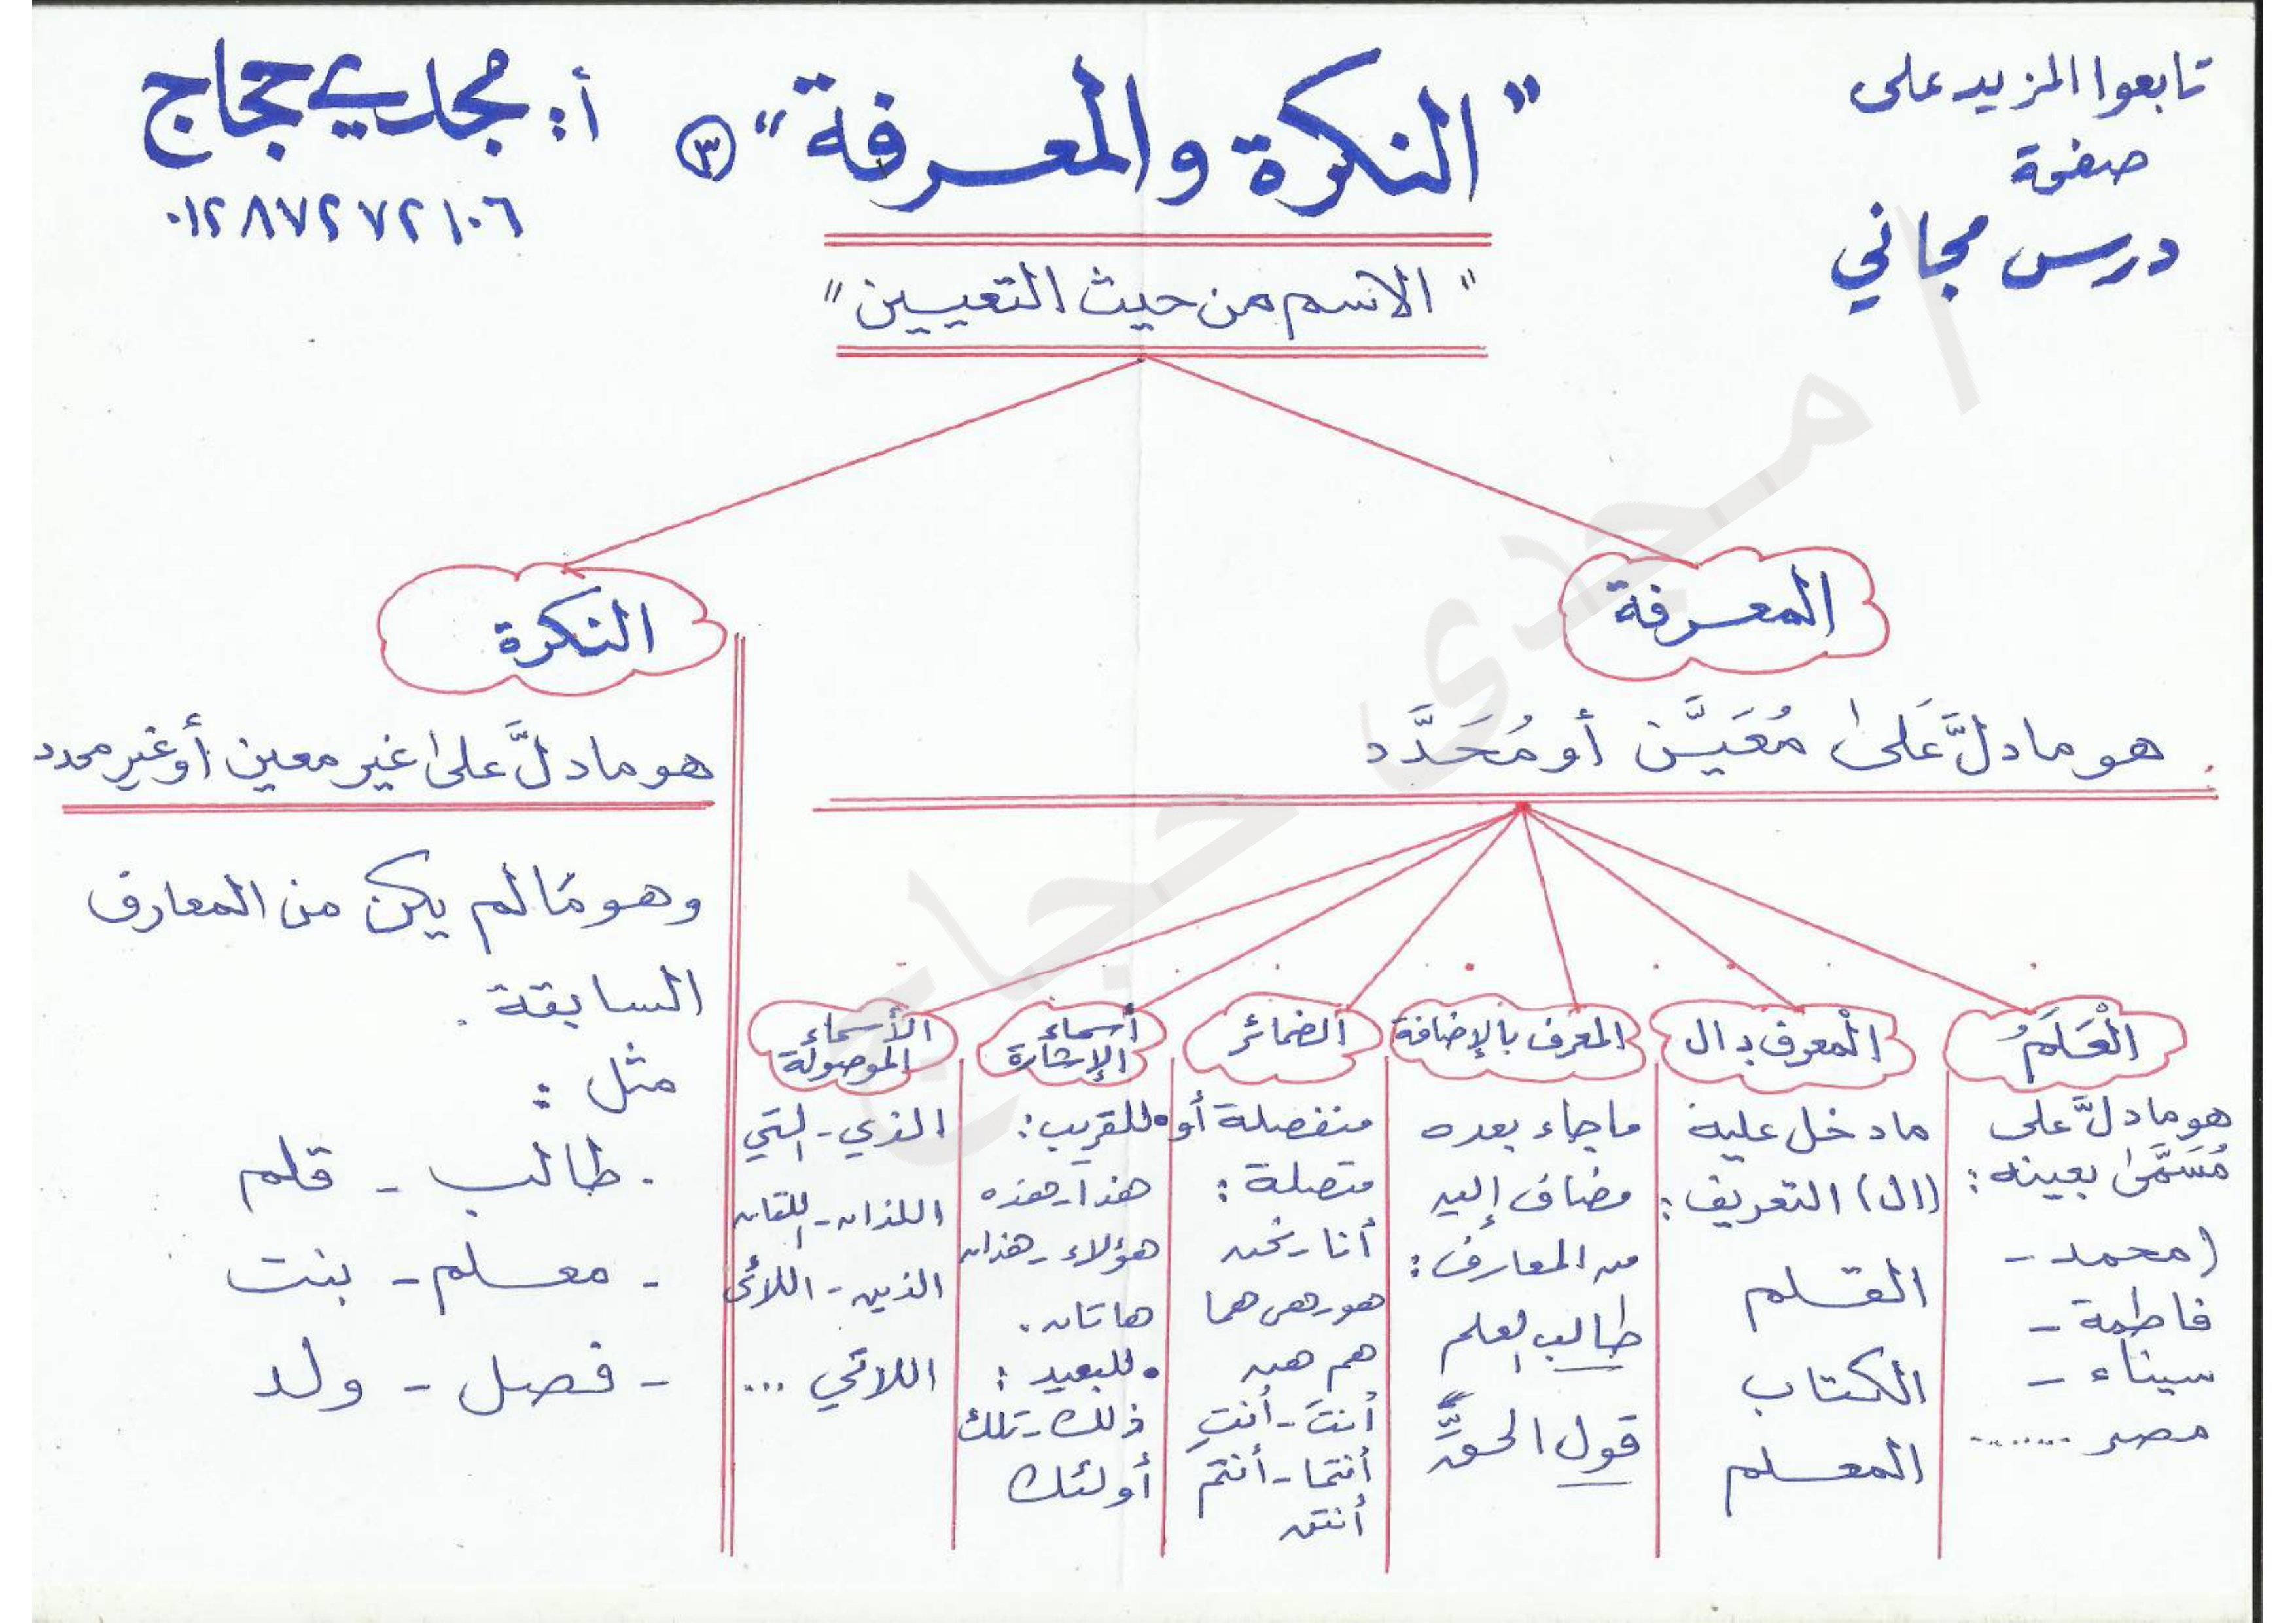 تابعوا المزيد على
صفحة
درس مجاني
"النكرة والمعرفة" ٣
أ: مجدي حجاج
٠١٢٨٧٢٧٢١٠٦
"الاسم من حيث التعيين"
المعرفة
هو ما دلَّ عَلَىٰ مُعَيَّن أو مُحَدَّد
الْعَلَمُ
هو ما دلَّ على
مُسَمَّىٰ بعينه:
(محمد -
فاطمة -
سيناء -
مصر .......
الْمعرف بـ ال
ما دخل عليه
(ال) التعريف:
القلم
الكتاب
المعلم
المعرف بالإضافة
ما جاء بعده
مضاف إليه
من المعارف:
طالب العلم
قول الحقِّ
الضمائر
منفصلة أو
متصلة:
أنا - نحن
هو - هى هما
هم هن
أنتَ - أنتِ
أنتما - أنتم
أنتن
أسماء
الإشارة
• للقريب:
هذا - هذه
هؤلاء - هذان
هاتان.
• للبعيد:
ذلك - تلك
أولئك
الأسماء
الموصولة
الذي - التي
اللذان - اللتان
الذين - اللائى
اللاتي ...
النكرة
هو ما دلَّ علىٰ غير معين أو غير محدد
وهو مَا لم يكن من المعارف
السابقة.
مثل:
- طالب - قلم
- معلم - بنت
- فصل - ولد
أ مجدى حجاج